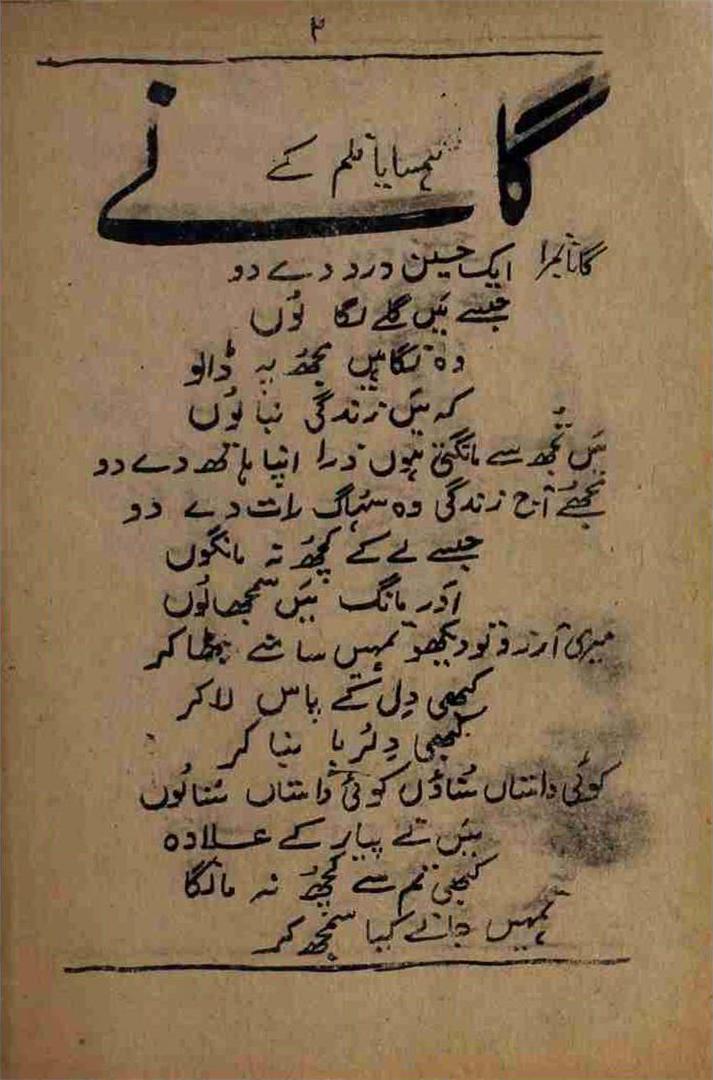 ۳
گانے
ہمسایا فلم کے
گانا نمبرا ایک حسین درد دے دو
جسے میَں گلے لگا لوُں
وہ نگاہیں مجھُ پہ ڈالو
کہ میَں زندگی بنا لوُں
میَں تجُھ سے مانگتی ہوں ذرا اپنا ہاتھ دے دو
مجھُے آج زندگی وہ سہُاگ رات دے دو
جسے لے کے کچھُ نہ مانگوں
اوَر مانگ میَں سمجھالوُں
میری آرزو تو دیکھو تمہیں سامنے بٹھا کر
کبھی دِل کے پاس لا کر
کبھی دِلرُبا بنا کر
کوئی داستاں سنُاؤں کوئی داستاں سنُالوُں
میَں نے پیار کے علاوہ
کبھی تم سے کچھُ نہ مانگا
تمہیں جانے کیا سمجھ کر